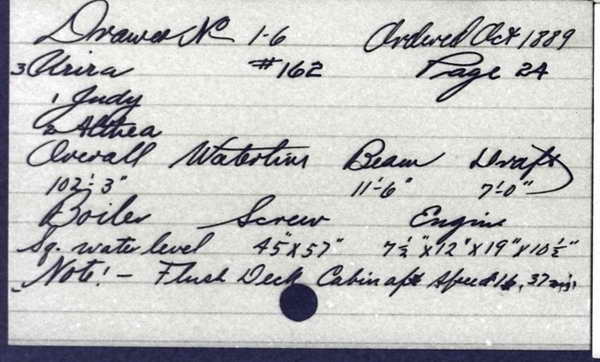 Drawer No 1-6 Ordered Oct 1889
3 Arira #162 Page 24
1 Judy
2 Althea
Overall Waterline Beam Draft
102'-3" 11'-6" 7'-0"
Boiler Screw Engine
Sq. water level 45"x57" 7½"x12"x19"x10½"
Note! - Flush Deck Cabin aft speed 16.37